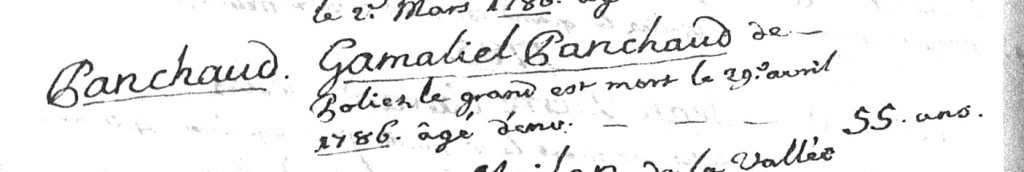 le 2.d Mars 1786. âg
Panchaud. Gamaliel Panchaud de -
Poliez le grand est mort le 29.e avril
1786. âgé d'env. - - - 55. ans.
de la Vallée